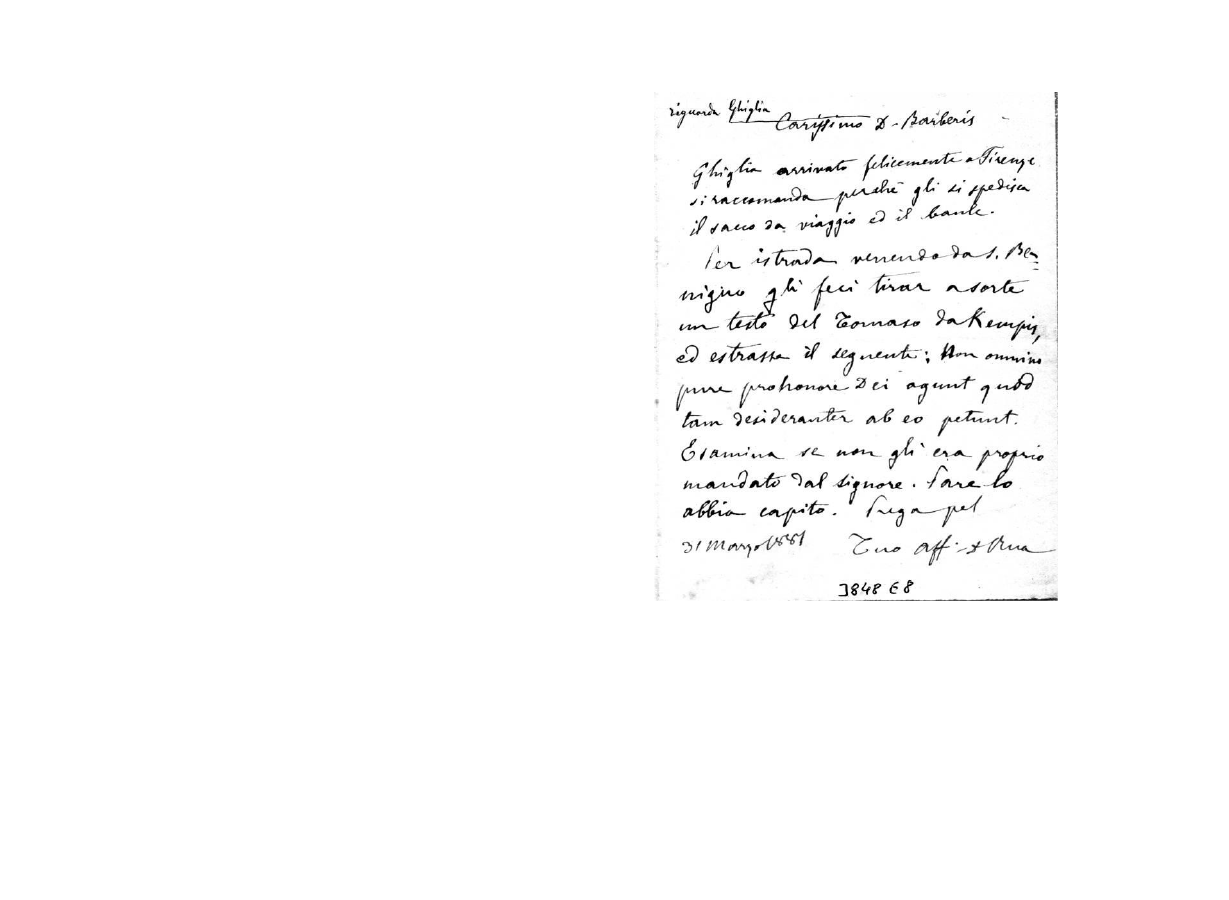 riguarda Ghiglia
Carissimo D. Barberis
Ghiglia arrivato felicemente a Firenze
si raccomanda perchè gli si spedisca
il sacco da viaggio ed il baule.
Per istrada venendo da S. Be=
nigno gli feci tirar a sorte
un testo del Tomaso da Kempis,
ed estrasse il seguente: Non omnino
pure pro honore Dei agunt quod
tam desideranter ab eo petunt.
Esamina se non gli era proprio
mandato dal Signore. Pare lo
abbia capito. Prega pel
31 Marzo 1881 Tuo aff. Rua
3848 E8